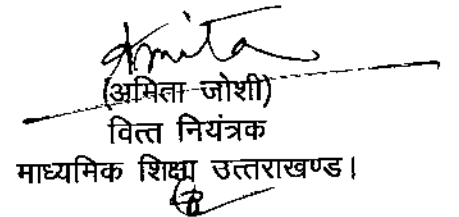 Amita
(अमिता जोशी)
वित्त नियंत्रक
माध्यमिक शिक्षा उत्तराखण्ड।